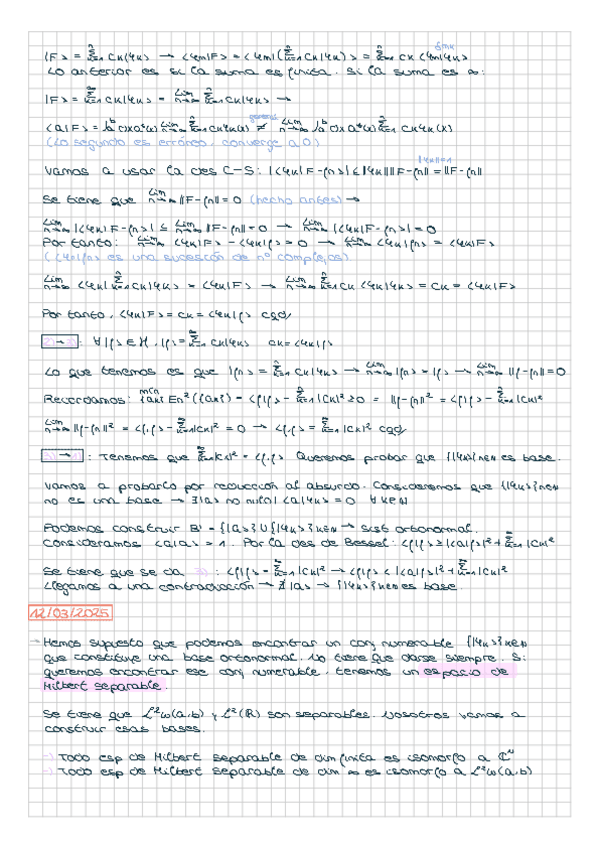 |F> = Σ_{k=1}^{n} Ck|Ψk> → <Ψm|F> = <Ψm|(Σ_{k=1}^{n} Ck|Ψk>) = Σ_{k=1}^{n} Ck <Ψm|Ψk> δmk
Lo anterior es si la suma es finita. Si la suma es ∞:
|F> = Σ_{k=1}^{∞} Ck|Ψk> = lim_{n→∞} Σ_{k=1}^{n} Ck|Ψk> →
<a|F> = ∫_a^b dx a*(x) lim_{n→∞} Σ_{k=1}^{n} CkΨk(x) ≠ (general) lim_{n→∞} ∫_a^b dx a*(x) Σ_{k=1}^{n} CkΨk(x)
(Lo segundo es erróneo, converge a 0)
Vamos a usar la des C-S: |<Ψk|F-fn>| ≤ ||Ψk|| ||F-fn|| = ||F-fn|| ||Ψk||=1
Se tiene que lim_{n→∞} ||F-fn||=0 (hecho antes) →
lim_{n→∞} |<Ψk|F-fn>| ≤ lim_{n→∞} ||F-fn||=0 → lim_{n→∞} |<Ψk|F-fn>|=0
Por tanto: lim_{n→∞} <Ψk|F> - <Ψk|fn> = 0 → lim_{n→∞} <Ψk|fn> = <Ψk|F>
(<Ψk|fn> es una sucesión de nº complejos)
lim_{n→∞} <Ψk|Σ_{k=1}^{n} Ck|Ψk> = <Ψk|F> → lim_{n→∞} Σ_{k=1}^{n} Ck <Ψk|Ψk> = Ck = <Ψk|F>
Por tanto, <Ψk|F> = Ck = <Ψk|f> cqd
2)→3): ∀|f> ∈ H, |f> = Σ_{k=1}^{∞} Ck|Ψk> Ck = <Ψk|f>
Lo que tenemos es que |fn> = Σ_{k=1}^{n} Ck|Ψk> → lim_{n→∞} |fn> = |f> → lim_{n→∞} ||f-fn||=0
Recordamos: min_{ak} En²({ak}) = <f|f> - Σ_{k=1}^{n} |Ck|² ≥0 = ||f-fn||² = <f|f> - Σ_{k=1}^{n} |Ck|²
lim_{n→∞} ||f-fn||² = <f|f> - Σ_{k=1}^{∞} |Ck|² = 0 → <f|f> = Σ_{k=1}^{∞} |Ck|² cqd
3)→1): Tenemos que Σ_{k=1}^{∞} |Ck|² = <f|f> Queremos probar que {|Ψk>}k∈N es base.
Vamos a probarlo por reducción al absurdo. Consideremos que {|Ψk>}k∈N
no es una base → ∃|a> no nulo / <a|Ψk> = 0 ∀k∈N
Podemos construir B' = {|a>} ∪ {|Ψk>}k∈N → Sist ortonormal.
Consideramos <a|a> = 1. Por la des de Bessel: <f|f> ≥ |<a|f>|² + Σ_{k=1}^{∞} |Ck|²
Se tiene que se da 3): <f|f> = Σ_{k=1}^{∞} |Ck|² → <f|f> < |<a|f>|² + Σ_{k=1}^{∞} |Ck|²
Llegamos a una contradicción → ∄ |a> → {|Ψk>}k∈N es base.
12/03/2025
→ Hemos supuesto que podemos encontrar un conj numerable {|Ψk>}k∈N
que constituye una base ortonormal. No tiene que darse siempre. Si
queremos encontrar ese conj numerable, tenemos un espacio de
Hilbert separable.
Se tiene que L²ω(a,b) y L²(ℝ) son separables. Nosotros vamos a
construir esas bases.
→) Todo esp de Hilbert separable de dim finita es isomorfo a ℂᴺ
→) Todo esp de Hilbert separable de dim ∞ es isomorfo a L²ω(a,b)